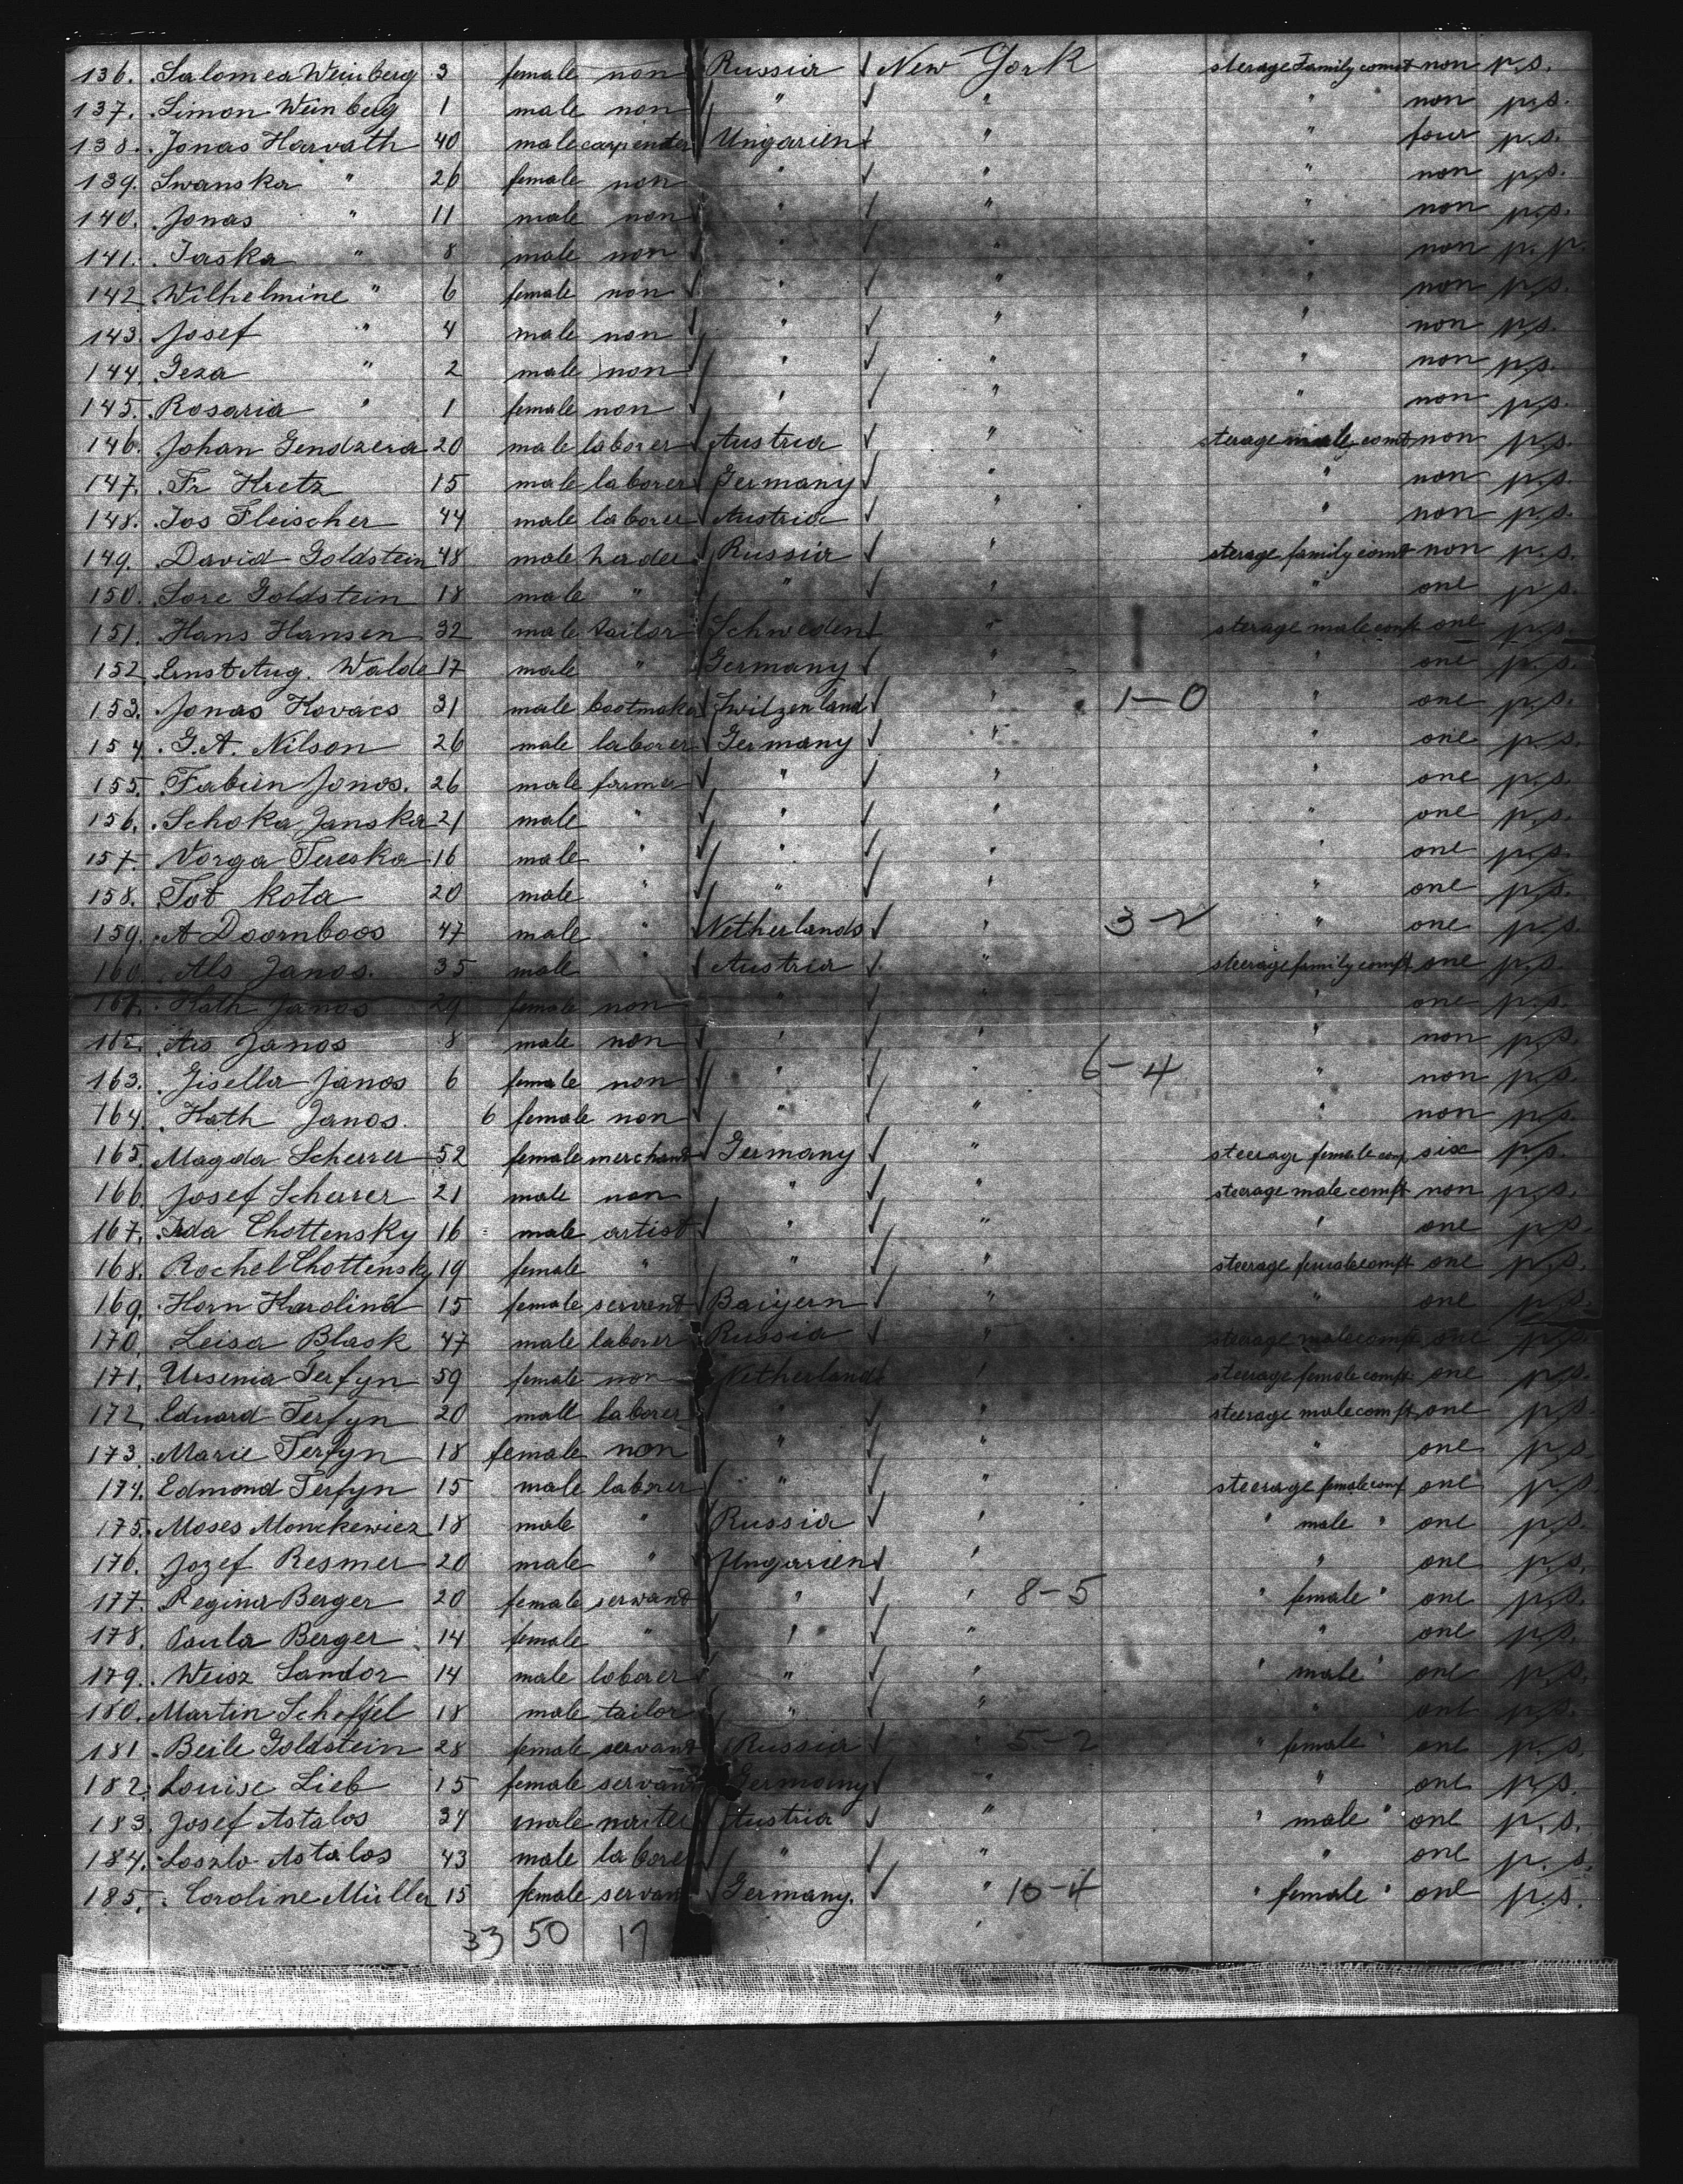 136. Salomea Weinberg 3 female non Russia New York sterage Family comt non p.s.
137. Simon Weinberg 1 male non " " " non p.s.
138. Jonas Harvath 40 male carpenter Ungarien " " four p.s.
139. Swanska " 26 female non " " " non p.s.
140. Jonas " 11 male non " " " non p.s.
141. Jaska " 8 male non " " " non p.p.
142 Wilhelmine " 6 female non " " " non p.s.
143. Josef " 4 male non " " " non p.s.
144. Geza " 2 male non " " " non p.s.
145. Rosaria " 1 female non " " " non p.s.
146. Johan Gendzera 20 male laborer Austria " sterage male comt non p.s.
147. Fr Kretz 15 male laborer Germany " " non p.s.
148. Jos Fleischer 44 male laborer Austria " " non p.s.
149. David Goldstein 48 male Russia " sterage family comt non p.s.
150. Sore Goldstein 18 male " " " " one p.s.
151. Hans Hansen 32 male tailor Schweden " sterage male comft one p.s.
152. Ernst Aug. Walde 17 male " Germany " " one p.s.
153. Jonas Kovács 31 male bootmaker Switzenland " 1-0 " one p.s.
154. G.A. Nilson 26 male laborer Germany " " one p.s.
155. Fabien Jonos. 26 male farmer " " " one p.s.
156. Schoka Janska 21 male " " " " one p.s.
157. Vorga Tereska 16 male " " " " one p.s.
158. Tot Kota 20 male " " " " one p.s.
159. A Doornboos 47 male " Netherlands " 3-2 " one p.s.
160. Als Janos. 35 male " Austria " steerage family comft one p.s.
161. Kath Janos 29 female non " " " one p.s.
162. Ars Janos 8 male non " " " non p.s.
163. Gisella Janos 6 female non " " 6-4 " non p.s.
164. Kath Janos. 6 female non " " " non p.s.
165. Magda Scherrer 52 female merchant Germany " steerage female comf six p.s.
166. Josef Scherrer 21 male non " " steerage male comft non p.s.
167. Ida Chottensky 16 male artist " " " one p.s.
168. Rochel Chottensky 19 female " " " steerage female comft one p.s.
169. Horn Karolina 15 female servent Baiyern " " one p.s.
170. Leisa Blask 47 male laborer Russia " steerage male comft one p.s.
171. Ursenia Terfyn 59 female non Netherland " steerage female comft one p.s.
172. Eduard Terfyn 20 mall laborer " " steerage male comft one p.s.
173. Marie Terfyn 18 female non " " " one p.s.
174. Edmond Terfyn 15 male laborer " " steerage female comf one p.s.
175. Moses Monckewicz 18 male " Russia " " male " one p.s.
176. Jozef Resmer 20 male " Ungarien " " one p.s.
177. Regina Berger 20 female serwand " " 8-5 " female " one p.s.
178. Paula Berger 14 female " " " " one p.s.
179. Weisz Sandor 14 male loborer " " " male " one p.s.
180. Martin Scheffel 18 male tailor " " " one p.s.
181. Beile Goldstein 28 female servant Russia " 5-2 " female " one p.s.
182. Louise Lieb 15 female servant Germany " " one p.s.
183. Josef Astalos 34 male Austria " " male " one p.s.
184. Loszlo Astalos 43 male laborer " " " one p.s.
185. Caroline Müller 15 female servant Germany. " 10-4 " female " one p.s.
33 50 17